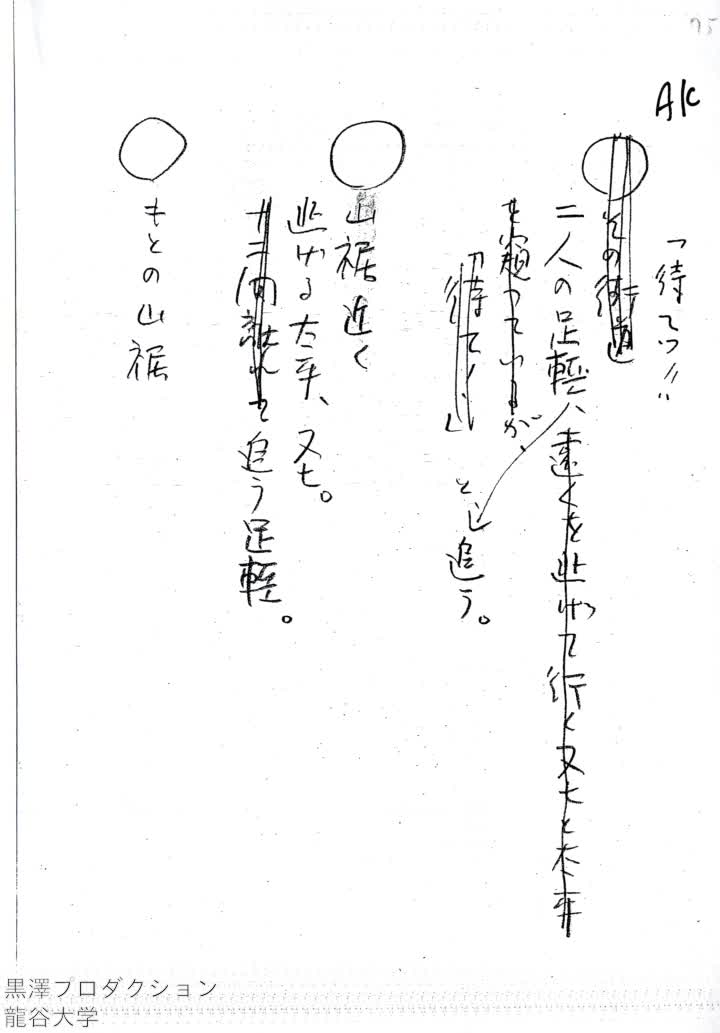 75
AK
「待てッ!!
その街道
二人の足軽、遠くを逃げて行く又七と太平
を窺っているが、
「待てく」と、追う。
山裾近く
逃げる太平、又七。
十二間離れて追う足軽。
もとの山裾
黒澤プロダクション
龍谷大学